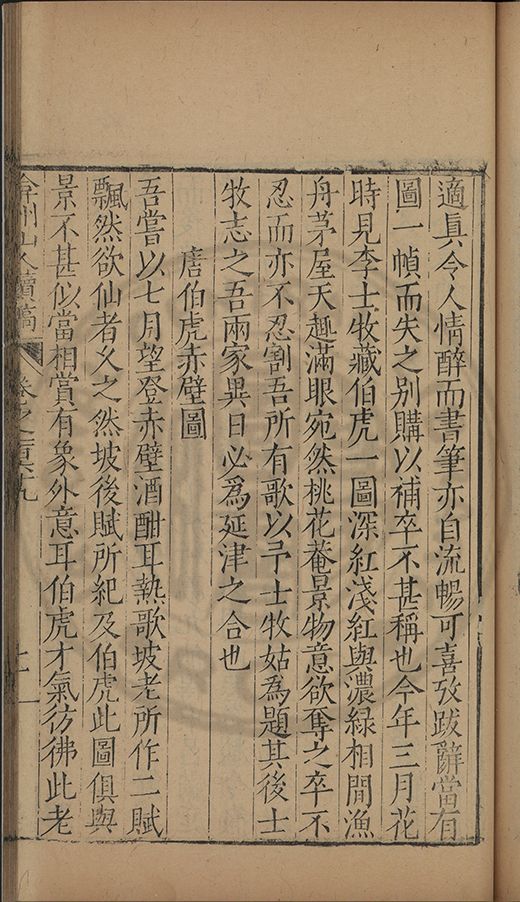 適真令人情醉而書筆亦自流暢可喜攷跋辭當有
圖一幀而失之别購以補卒不甚稱也今年三月花
時見李士牧藏伯虎一圖深紅淺紅與濃緑相間漁
舟茅屋天趣滿眼宛然桃花菴景物意欲奪之卒不
忍而亦不忍割吾所有歌以予士牧姑為題其後士
牧志之吾兩家異日必為延津之合也
唐伯虎赤壁圖
吾嘗以七月望登赤壁酒酣耳熱歌坡老所作二賦
飄然欲仙者久之然坡後賦所紀及伯虎此圖俱與
景不甚似當相賞有象外意耳伯虎才氣彷彿此老
弇州山人續稿 卷之一百六十九